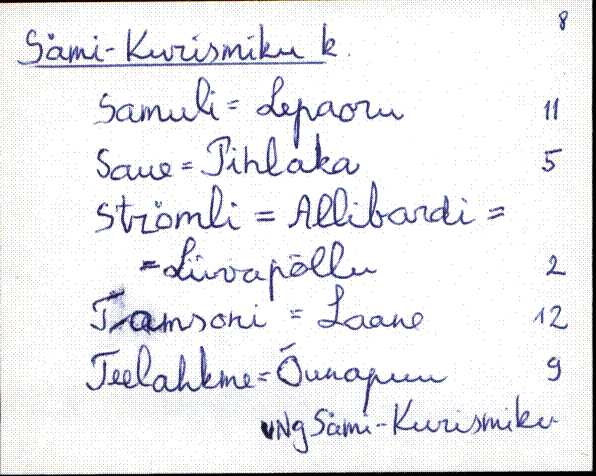 8
Sämi-Kurismiku k.
Samuli = Lepaoru 11
Saue = Pihlaka 5
Strömli = Allibardi =
= Liivapõllu 2
Tamsoni = Laane 12
Teelahkme = Õunapuu 9
vNg Sämi-Kurismiku